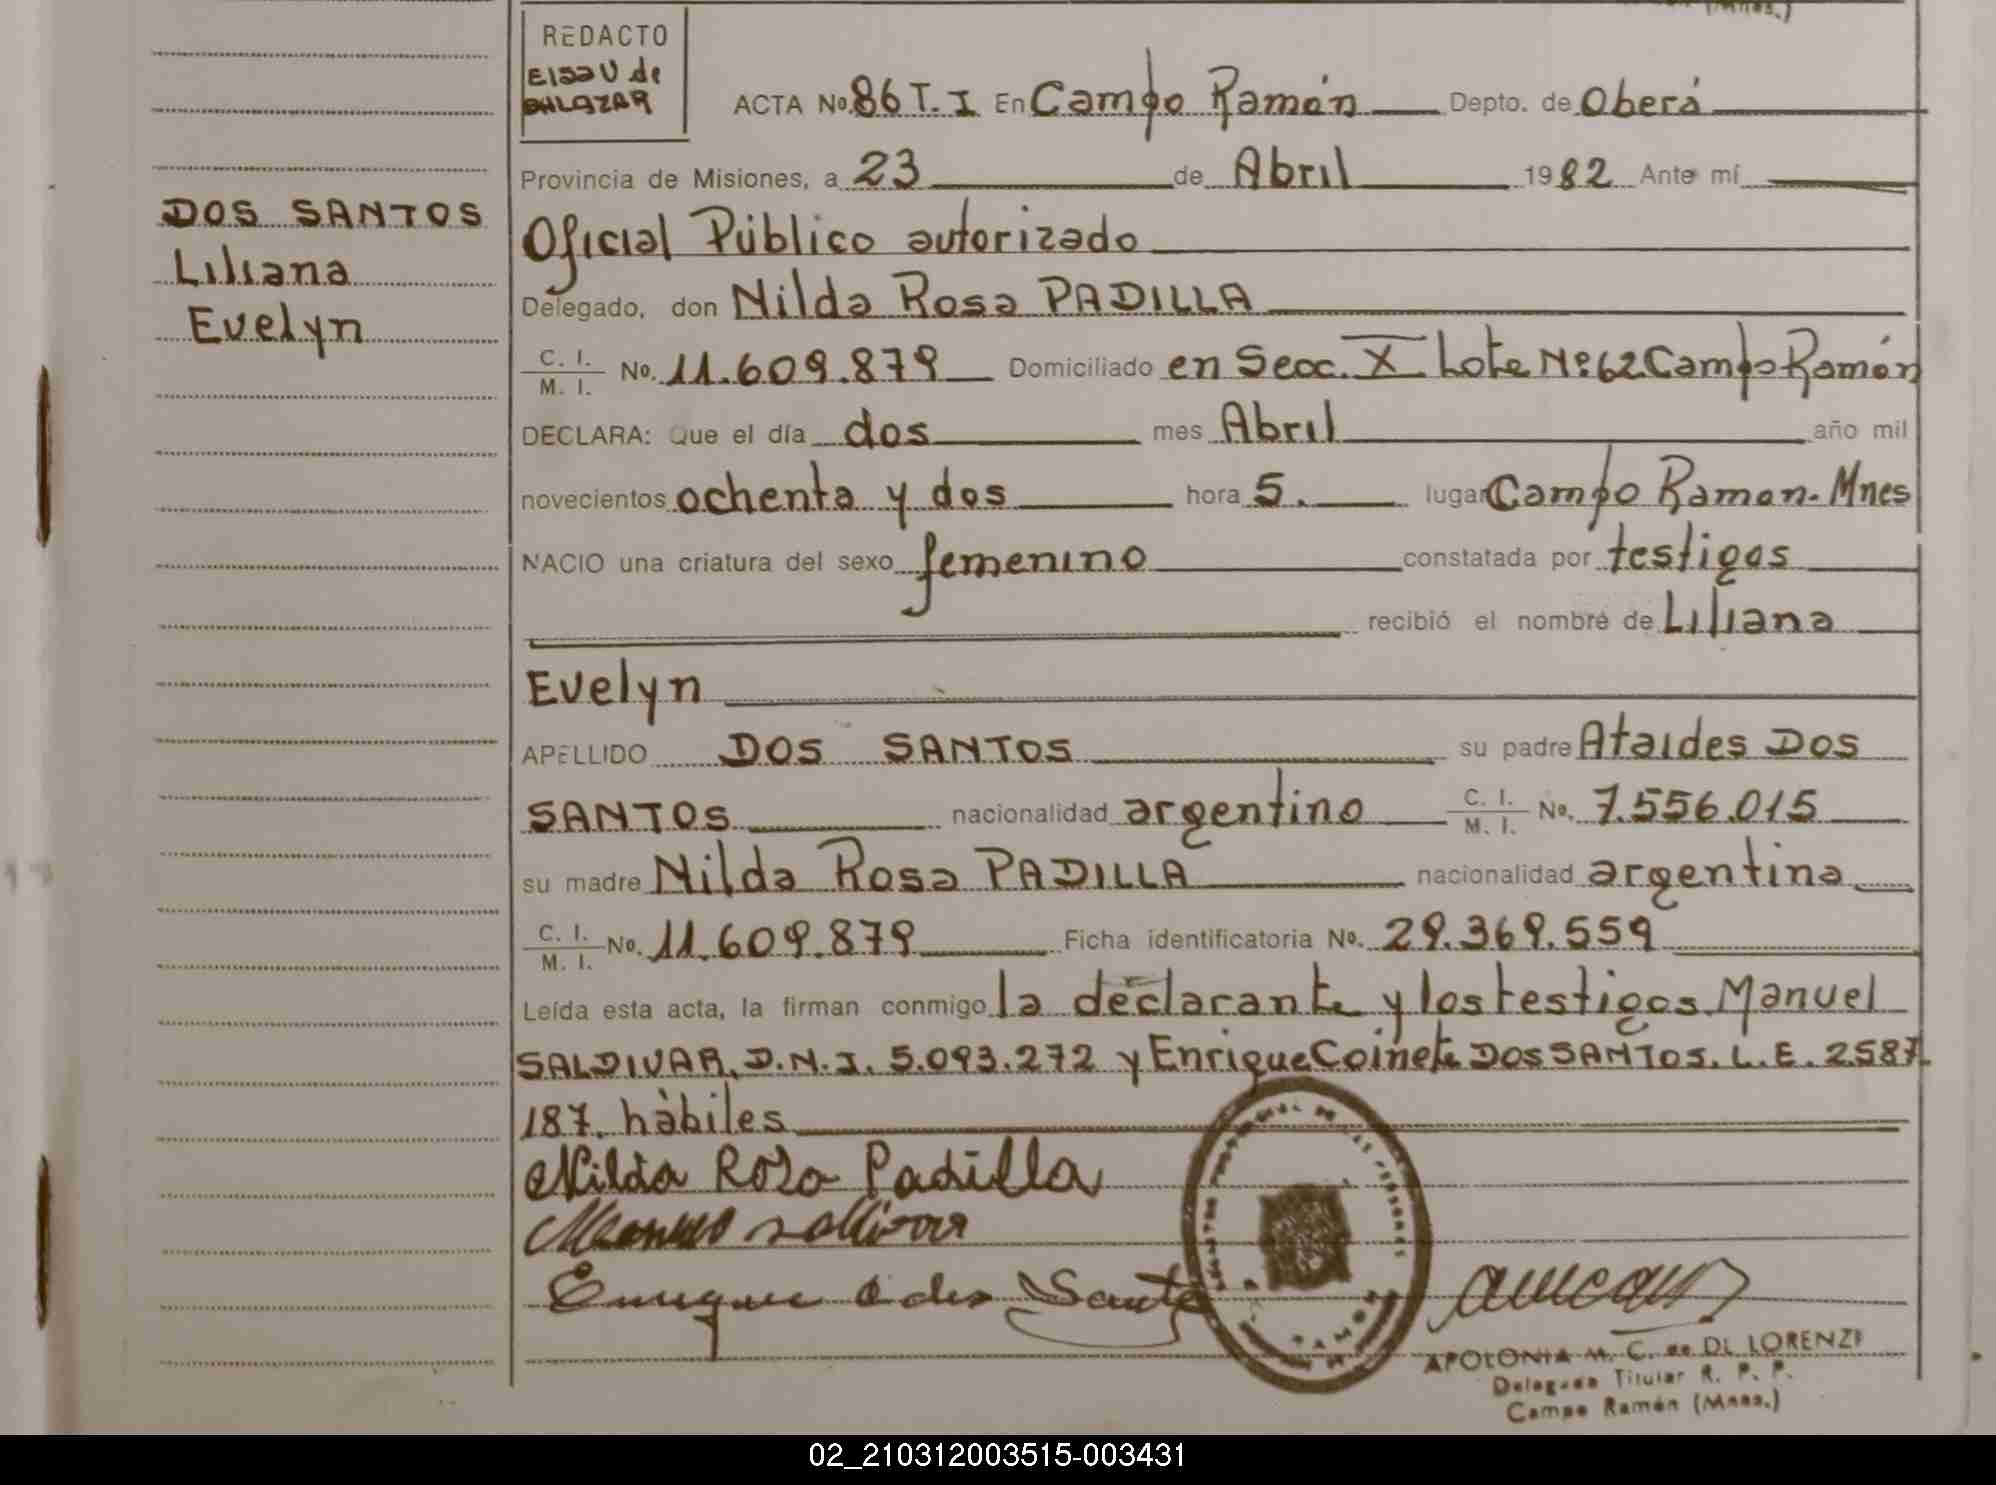 (Mnes.)
REDACTO
Elsa V de
SALAZAR
ACTA No. 86 T. I En Campo Ramón Depto. de Oberá
Provincia de Misiones, a 23 de Abril 1982 Ante mí
DOS SANTOS
Liliana
Evelyn
Oficial Público autorizado
Delegado, don Nilda Rosa PADILLA
C. I.
M. I. No. 11.609.879 Domiciliado en Secc. X Lote Nº 62 Campo Ramón
DECLARA: Que el día dos mes Abril año mil
novecientos ochenta y dos hora 5. lugar Campo Ramon. Mnes
NACIO una criatura del sexo femenino constatada por testigos
recibió el nombre de Liliana
Evelyn
APELLIDO DOS SANTOS su padre Ataides DOS
SANTOS nacionalidad argentino C. I. M. I. No. 7.556.015
su madre Nilda Rosa PADILLA nacionalidad argentina
C. I.
M. I. No. 11.609.879 Ficha identificatoria No. 29.369.559
Leída esta acta, la firman conmigo la declarante y los testigos Manuel
SALDIVAR, D.N.I. 5.093.272 y Enrique Coinete DOS SANTOS. L.E. 2587.
187. hàbiles
Nilda Rosa Padilla
Manuel Saldivar
Enrique C dos Santos
APOLONIA M. C. de DL LORENZI
Delegada Titular R. P. P.
Campo Ramón (Mnes.)
02_210312003515-003431